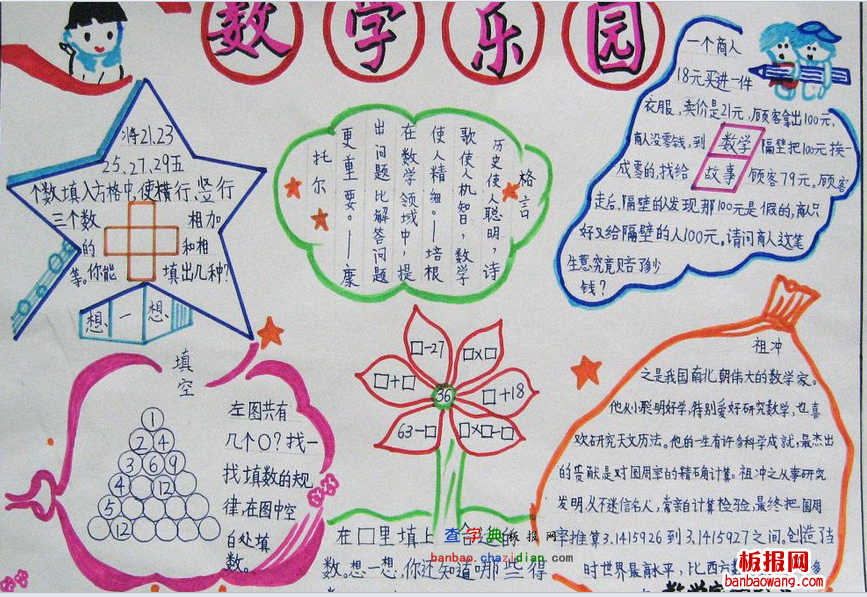 数学乐园
将21.23
25.27.29五
个数,填入方格中,使横行、竖行
三个数 相加
的 和相
等。你能 填出几种?
想一想
历史使人聪明,诗
歌使人机智,数学
使人精细。——培根
在数学领域中,提
出问题比解答问题
更重要。——康
托尔
格言
一个商人
18元买进一件
衣服,卖价是21元,顾客拿出100元,
商人没零钱,到 隔壁把100元换
成零的,找给 顾客79元。顾客
走后,隔壁的人发现那100元是假的,商人只
好又给隔壁的人100元。请问商人这笔
生意究竟赔了多少
钱?
数学
故事
填空
左图共有
几个○?找一
找填数的规
律,在图中空
白处填
数。
1
2 4
3 6 9
4 12
5
12
□-27
□x□
□+□
36
□+18
63-□
□x□-□
在□里填上 合适的
数。想一想,你还知道哪些得
查字典 板报网
banbao.chazidian.com
祖冲
之是我国南北朝伟大的数学家。
他从小聪明好学,特别爱好研究数学,也喜
欢研究天文历法。他的一生有许多科学成就,最杰出
的贡献是对圆周率的精确计算。祖冲之从事研究
发明,从不迷信名人,常亲自计算检验,最终把圆周
率推算3.1415926到3.1415927之间,创造了当
时世界最高水平,比西方数
板报网
banbaowang.com